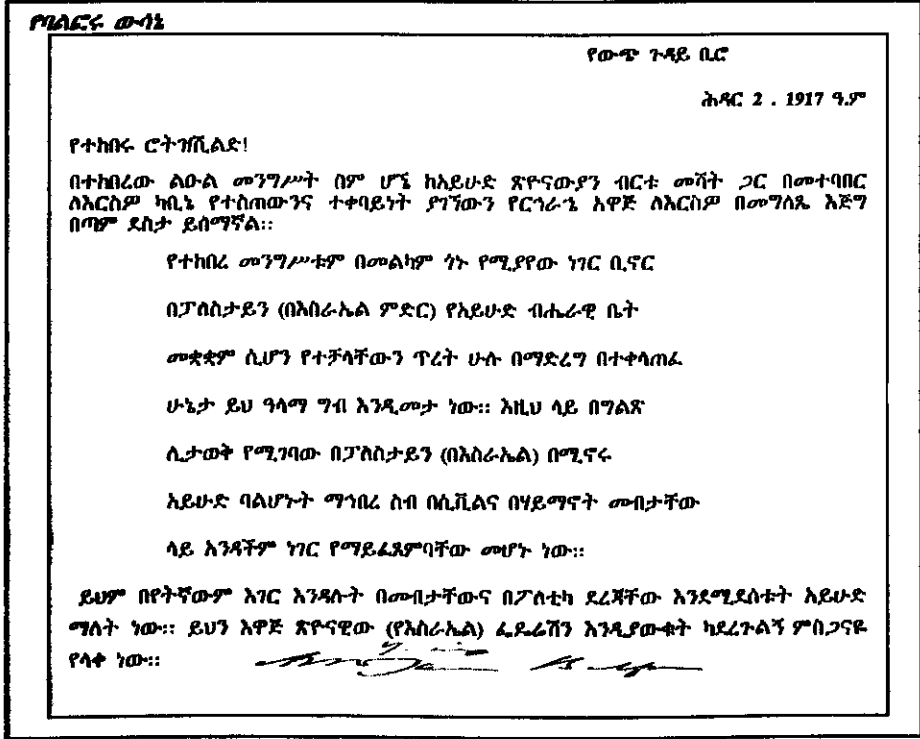 የባልፎሩ ውሳኔ
የውጭ ጉዳይ ቢሮ
ሕዳር 2 . 1917 ዓ.ም
የተከበሩ ሮትሽሺልድ!
በተከበረው ልዑል መንግሥት ስም ሆኜ ከአይሁድ ጽዮናውያን ብርቱ መሻት ጋር በመተባበር
ለእርስዎ ካቢኔ የተሰጠውንና ተቀባይነት ያገኘውን የርኅራኄ አዋጅ ለእርስዎ በመግለጼ እጅግ
በጣም ደስታ ይሰማኛል።
የተከበረ መንግሥቱም በመልካም ጎኑ የሚያየው ነገር ቢኖር
በፓለስታይን (በእስራኤል ምድር) የአይሁድ ብሔራዊ ቤት
መቋቋም ሲሆን የተቻላቸውን ጥረት ሁሉ በማድረግ በተቀላጠፈ
ሁኔታ ይህ ዓላማ ግብ እንዲመታ ነው። እዚህ ላይ በግልጽ
ሊታወቅ የሚገባው በፓለስታይን (በእስራኤል) በሚኖሩ
አይሁድ ባልሆኑት ማኅበረ ስብ በሲቪልና በሃይማኖት መብታቸው
ላይ አንዳችም ነገር የማይፈጸምባቸው መሆኑ ነው።
ይህም በየትኛውም አገር እንዳሉት በመብታቸውና በፖለቲካ ደረጃቸው እንደሚደሰቱት አይሁድ
ማለት ነው። ይህን አዋጅ ጽዮናዊው (የእስራኤል) ፌዴሬሽን እንዲያውቁት ካደረጉልኝ ምስጋናዬ
የላቀ ነው።